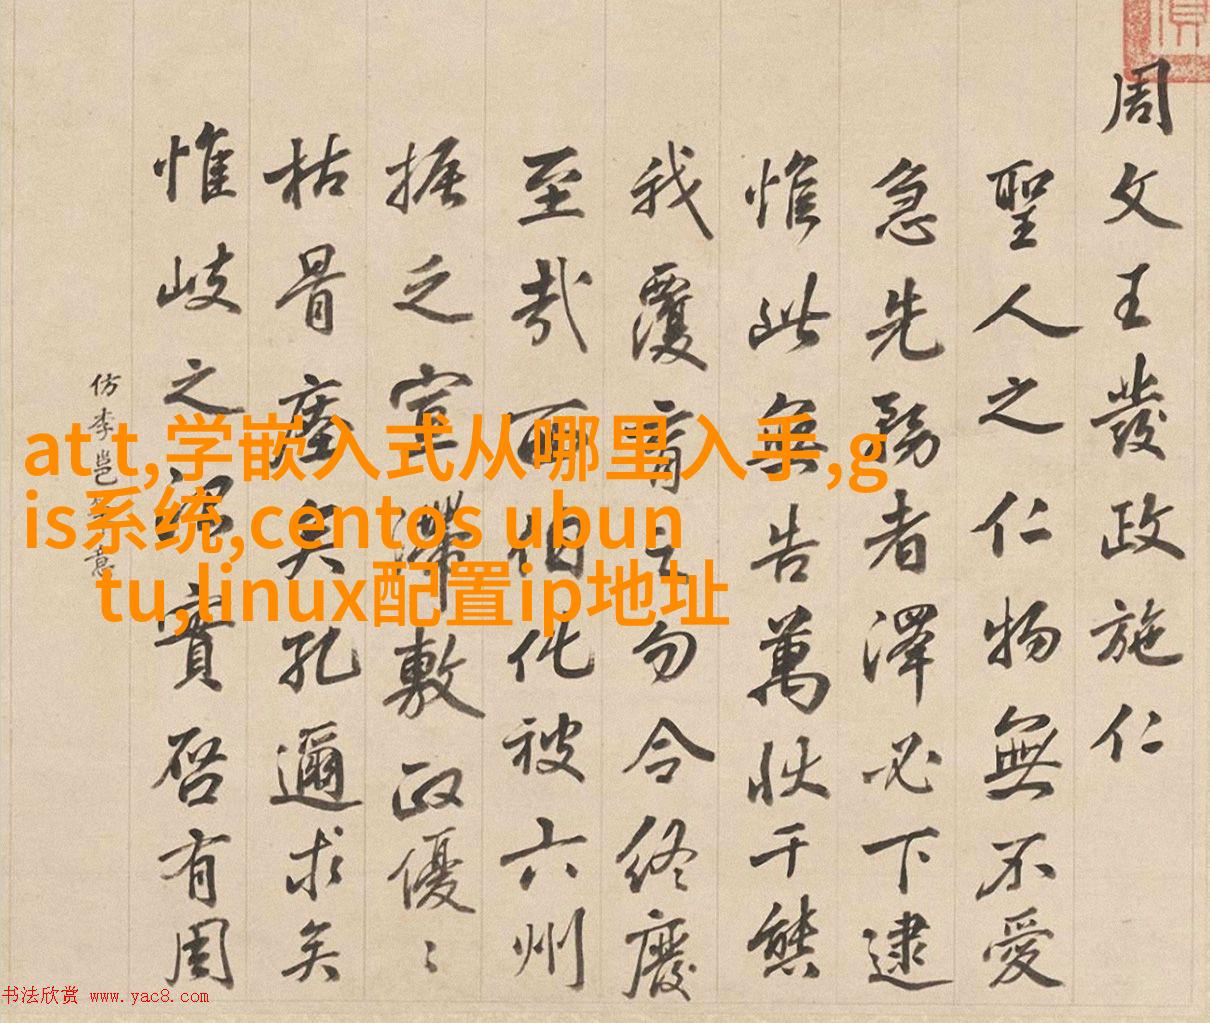 周文王發政施仁
聖人之仁物無不愛
急先務者澤必下逮
惟此無告萬狀千態
我覆育之勿令終廢
至哉西伯化被六州
振乏室滯敷政優〻
枯骨瘞矣孔邇求矣
惟岐之
實啓有周
仿李邕筆意
att,学嵌入式从哪里入手,g
is系统,centos ubun
tu,linux配置ip地址
书法欣赏 www.yac8.com